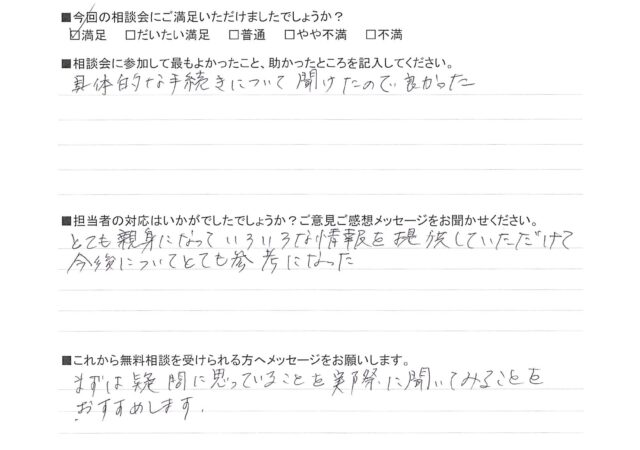 ■今回の相談会にご満足いただけましたでしょうか？
☑満足 □だいたい満足 □普通 □やや不満 □不満
■相談会に参加して最もよかったこと、助かったところを記入してください。
具体的な手続きについて聞けたので良かった
■担当者の対応はいかがでしたでしょうか？ご意見ご感想メッセージをお聞かせください。
とても親身になっていろいろな情報を提供していただけて
今後についてとても参考になった
■これから無料相談を受けられる方へメッセージをお願いします。
まずは疑問に思っていることを実際に聞いてみることを
おすすめします.